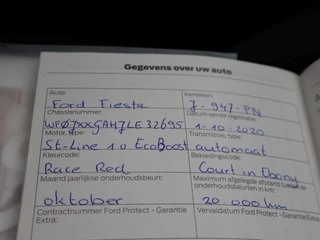 Gegevens over uw auto
Auto: Kenteken:
Ford Fiesta J-947-PN
Chassisnummer: Datum eerste registratie:
WF0JXXGAHJLE32695 1-10-2020
Motor, type: Transmissie, type:
St-Line 1.0 EcoBoost automaat
Kleurcode: Bekledingscode:
Race Red Court in Ebony
Maand jaarlijkse onderhoudsbeurt: Maximum afgelegde afstand tussen de onderhoudsbeurten in km:
oktober 20.000 km
Contractnummer Ford Protect - Garantie Vervaldatum Ford Protect - Garantie Extra:
Extra: